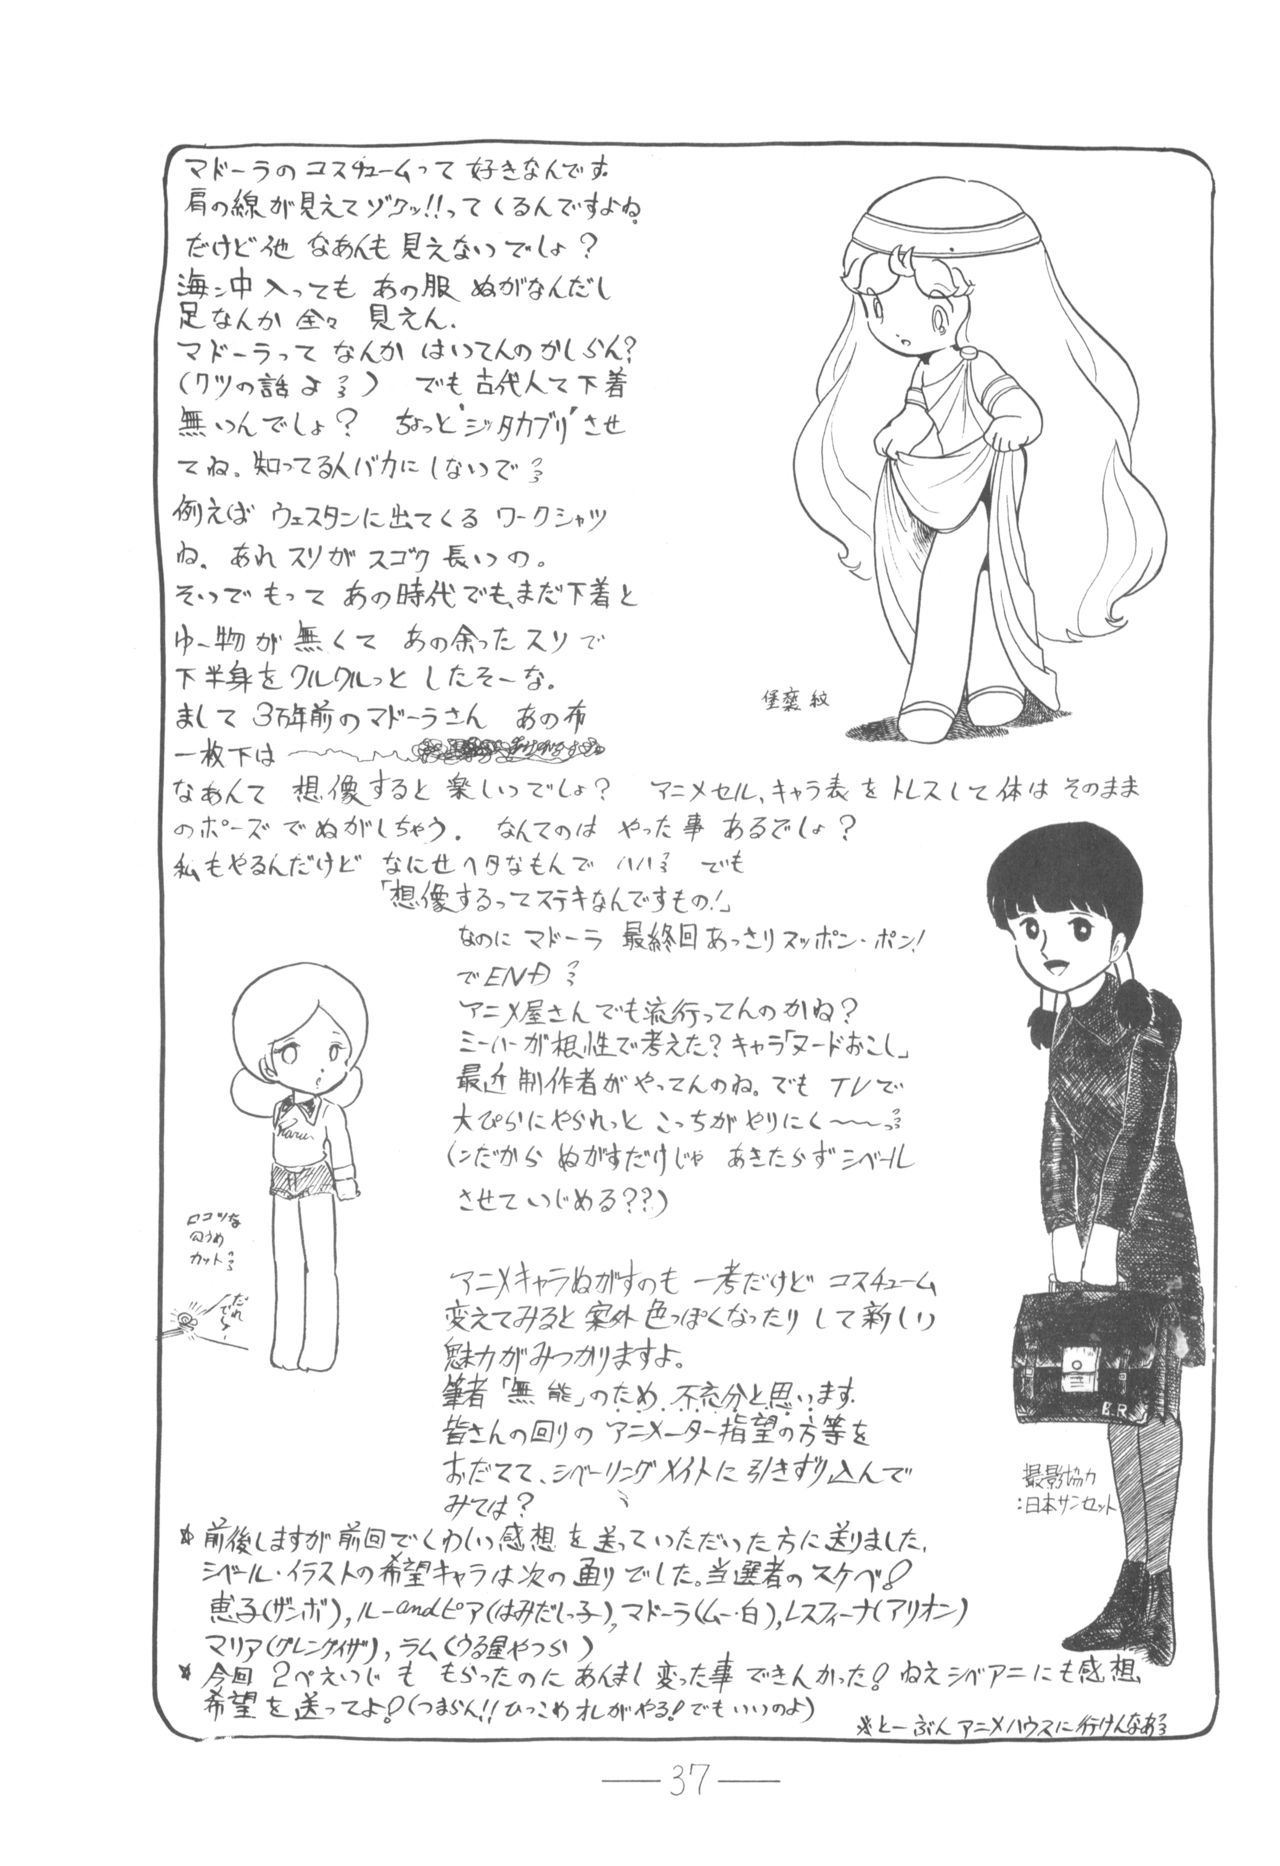 マドーラのコスチュームって好きなんです.
肩の線が見えてゾクッ!!ってくるんですよね.
だけど他 なあんも見えないつでしょ?
海ン中入っても あの服 ぬがなんだし
足なんか全々 見えん.
マドーラってなんか はいてんのかしらん?
(クツの話よ) でも古代人て下着
無いつんでしょ? ちょっと"ジッタカブリ"させ
てね。知ってる人バカにしないで
例えば ウェスタンに出てくる ワークシャツ
ね. あれスソがスゴク長いつの。
そいつでもって あの時代でも、まだ下着と
ゆー物が無くて あの余ったスソで
下半身をクルクルっと したそーな。
まして 3万年前のマドーラさん あの布
一枚下は
なあんて 想像すると楽しいつでしょ? アニメセル、キャラ表をトレスして体はそのまま
のポーズでぬがしちゃう. なんてのは やった事あるでしょ?
私もやるんだけど なにせヘタなもんで ハハ でも
「想像するってステキなんですもの!」
なのに マドーラ 最終回あっさりスッポン・ポン!
でEND
アニメ屋さんでも流行ってんのかね?
ミーハーが根性で考えた? キャラ「ヌードおこし」
最近制作者がやってんのね。でも TVで
大ぴらにやられっと こっちがやりにく〜〜っ
(ンだから ぬがすだけじゃ あきたらずシベール
させて いじめる??)
アニメキャラぬがすのも 一考だけど コスチューム
変えてみると案外色っぽくなったりして新しい
魅力がみつかりますよ。
筆者「無能」のため、不充分と思います.
皆さんの回りの アニメーター指望の方等を
おだてて、シベーリングメイトに引きずり込んで
みては?
Karu
ロコツな
穴うめ
カット
だれ
で〜?
B.R
撮影協力
:日本サンセット
* 前後しますが前回でくわしい感想を送っていただいた方に送りました.
シベール・イラストの希望キャラは次の通りでした。当選者のスケベ!
恵子(ザンボ),ルーandピア(はみだしっ子),マドーラ(ムー・白),レスフィーナ(アリオン)
マリア(グレンダイザ), ラム(うる星やつら)
* 今回 2ぺえいじも もらったのに あんまし変った事 できんかった! ねえシベアニにも感想
希望を送ってよ!(つまらん!!ひっこめオレがやる!でもいいのよ)
※とーぶんアニメハウスに行けんなあ
37